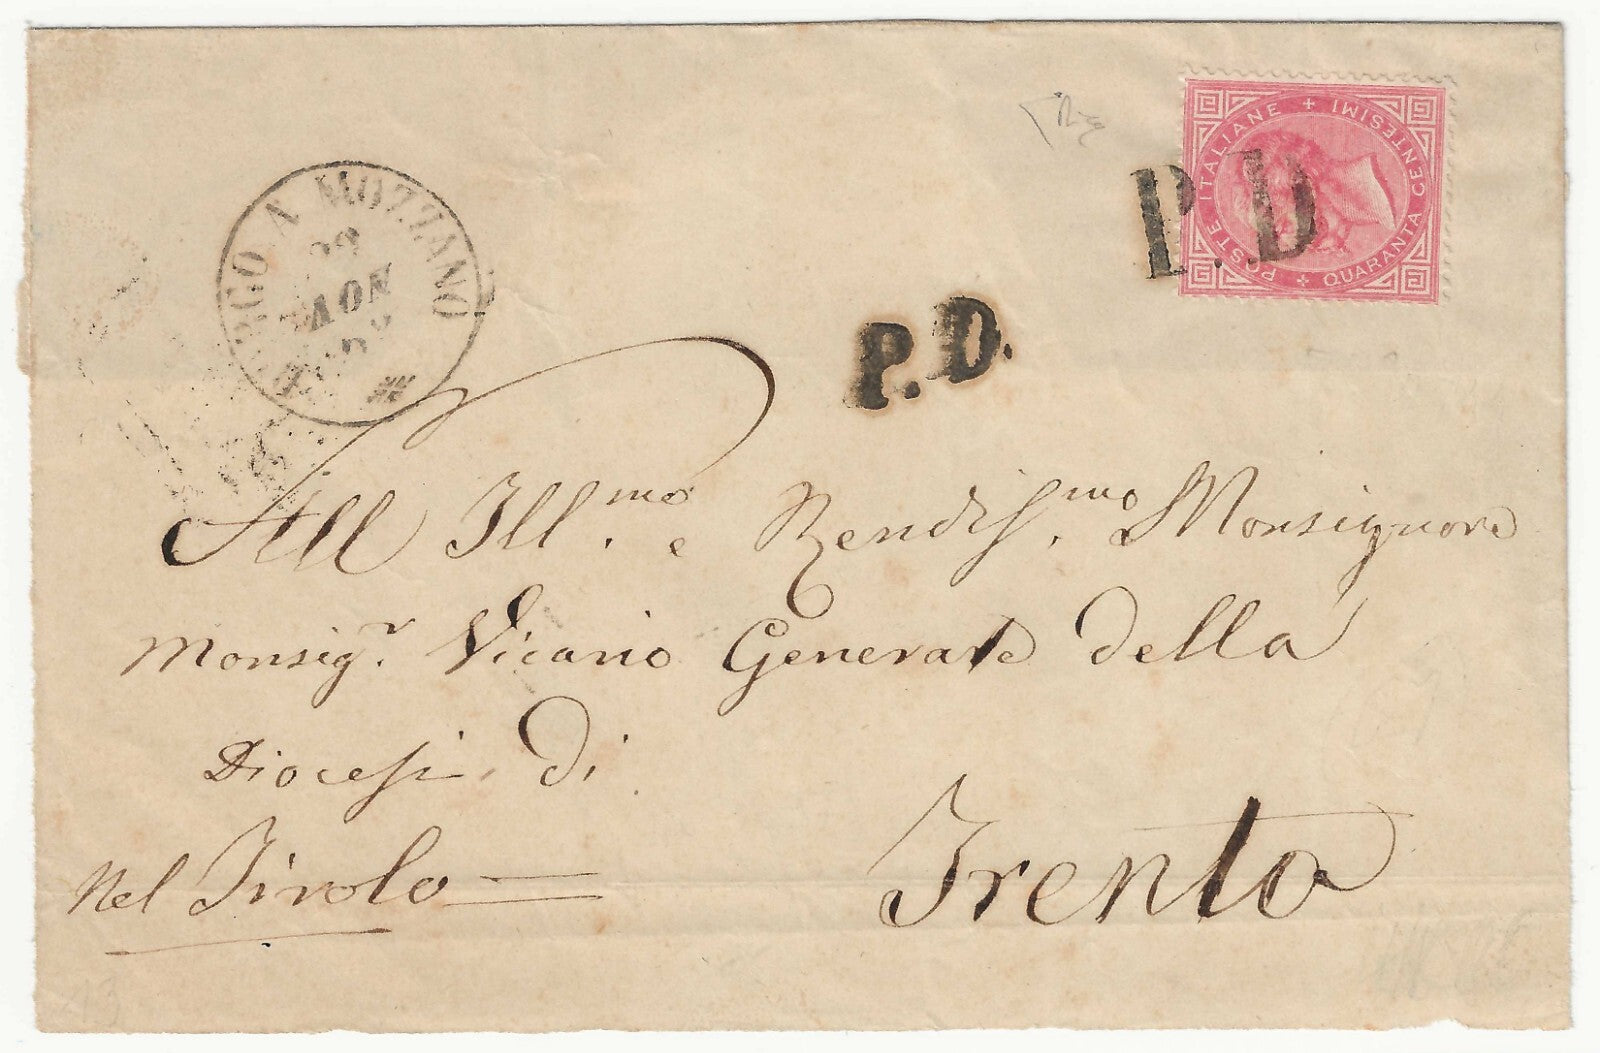 POSTE ITALIANE + QUARANTA CENTESIMI +
P.D
BORGO A MOZZANO
NOV
P.D.
All Ill.mo e Rendiss.mo Monsignore
Monsig.r Vicario Generale della
Diocesi di
Trento
Nel Tirolo